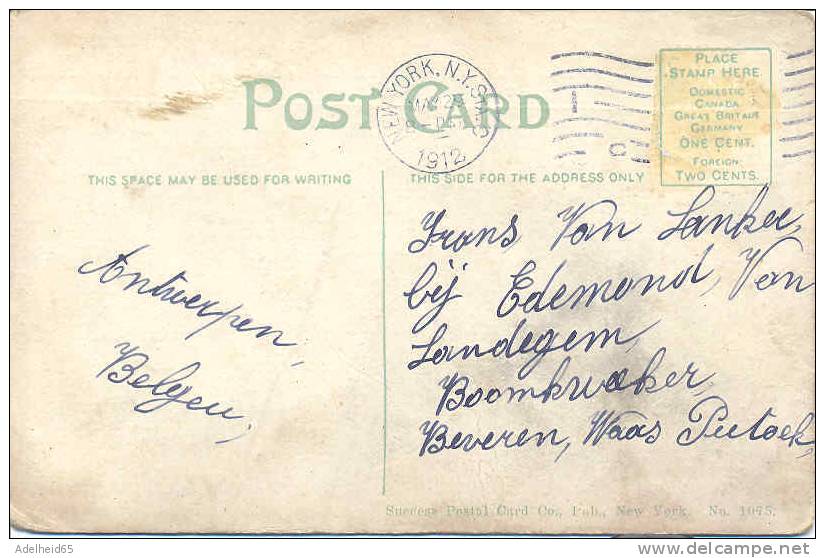 POST CARD
NEW YORK, N.Y.
1912
PLACE
STAMP HERE
DOMESTIC
CANADA
GREAT BRITAIN
GERMANY
ONE CENT.
FOREIGN
TWO CENTS.
THIS SPACE MAY BE USED FOR WRITING
THIS SIDE FOR THE ADDRESS ONLY
Antwerpen,
Belgeu,
Frans Van Lanker,
bij Edemond, Van
Landegem,
Boomkweker,
Beveren, Waas
Success Postal Card Co., Pub., New York. No. 1075.
Adelheid65
www.delcampe.net